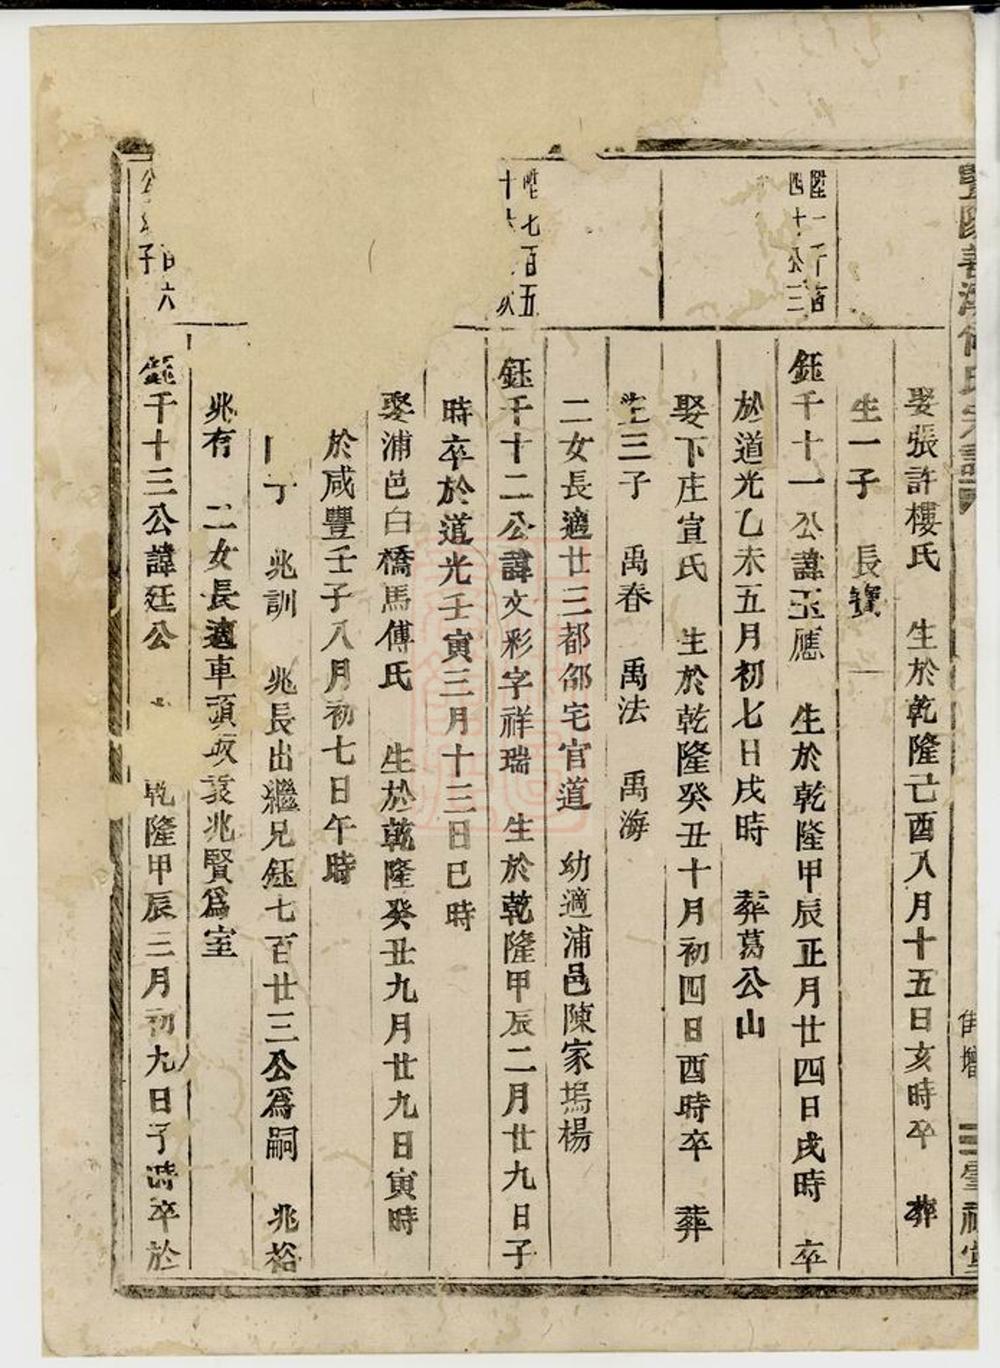 暨陽
娶張許樓氏 生於乾隆己酉八月十五日亥時卒 葬
生一子 長寶
陞一千百三
四十公
鈺千十一公諱玉應 生於乾隆甲辰正月廿四日戌時 卒
於道光乙未五月初七日戌時 葬葛公山
娶下庄宣氏 生於乾隆癸丑十月初四日酉時卒 葬
生三子 禹春 禹法 禹海
二女長適廿三都邵宅官道 幼適浦邑陳家塢楊
陞七百五
十
鈺千十二公諱文彩字祥瑞 生於乾隆甲辰二月廿九日子
時卒於道光壬寅三月十三日巳時
娶浦邑白橋馬傅氏 生於乾隆癸丑九月廿九日寅時
於咸豐壬子八月初七日午時
兆訓 兆長出繼兄鈺七百廿三公為嗣 兆裕
兆有 二女長適車頭坂袁兆賢為室
百六
子
鈺千十三公諱廷公 乾隆甲辰三月初九日子時卒於